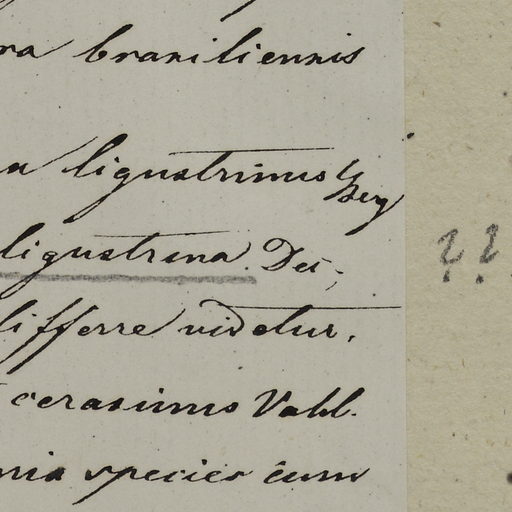 ra brasiliensis
a ligustrinus
ligustrina. Dec.;
differre videtur,
cerasinus Vahl.
species cum
??